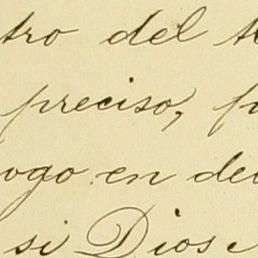 tro del t
preciso, p
ogo en de
si Dios